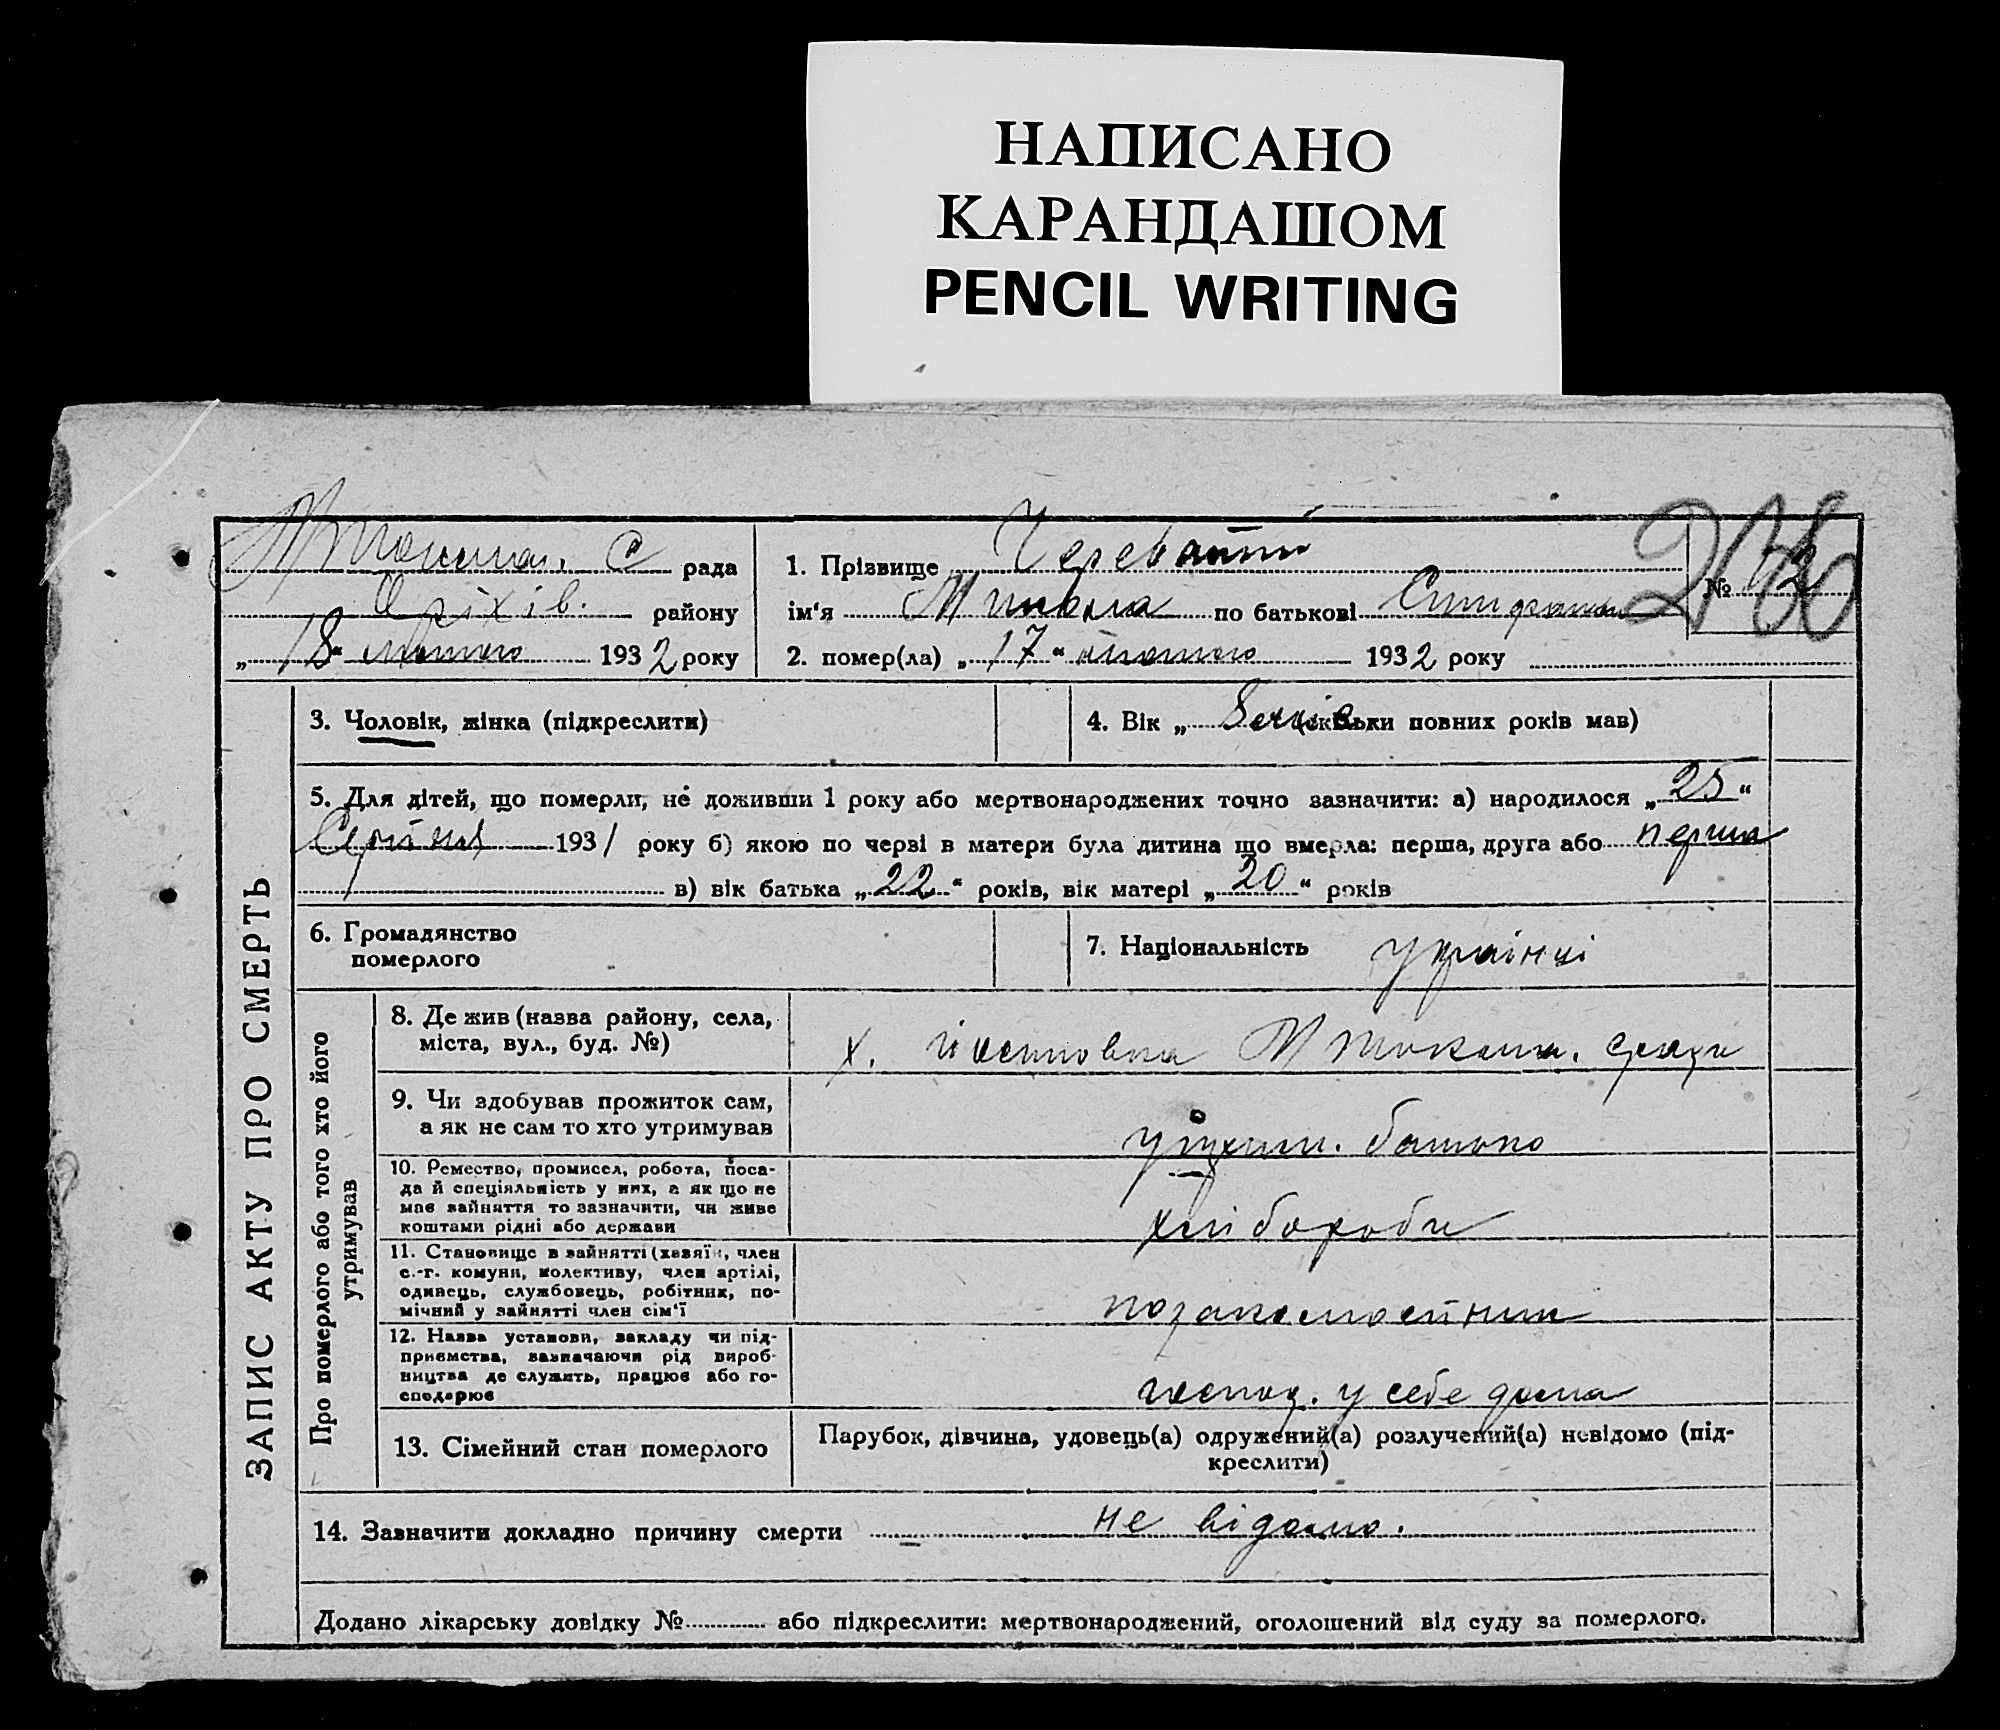 НАПИСАНО
КАРАНДАШОМ
PENCIL WRITING
С рада
Оріхів. району
„18“ лютого 1932 року
1. Прізвище Череватий
ім‘я Микола по батькові
2. помер(ла) „17“ лютого 1932 року
№
ЗАПИС АКТУ ПРО СМЕРТЬ
3. Чоловік, жінка (підкреслити)
4. Вік „ (скільки повних років мав)
5. Для дітей, що померли, не доживши 1 року або мертвонароджених точно зазначити: а) народилося „25“
Серпня 1931 року б) якою по черві в матери була дитина що вмерла: перша, друга або перша
в) вік батька „22“ років, вік матері „20“ років
6. Громадянство
померлого
7. Національність українці
Про померлого або того хто його
утримував
8. Де жив (назва району, села,
міста, вул., буд. №)
х.
9. Чи здобував прожиток сам,
а як не сам то хто утримував
утрим. батько
10. Ремество, промисел, робота, поса-
да й спеціяльність у них, а як що не
має зайняття то зазначити, чи живе
коштами рідні або держави
хлібороби
11. Становище в зайнятті (хазяїн, член
с.-г. комуни, колективу, член артілі,
одинець, службовець, робітник, по-
мічний у зайнятті член сім‘ї
12. Назва установи, закладу чи під-
приємства, зазначаючи рід вироб-
ництва де служить, працює або го-
сподарює
господ. у себе дома
13. Сімейний стан померлого
Парубок, дівчина, удовець(а) одружений(а) розлучений(а) невідомо (під-
креслити)
14. Зазначити докладно причину смерти не відомо.
Додано лікарську довідку № або підкреслити: мертвонароджений, оголошений від суду за померлого.